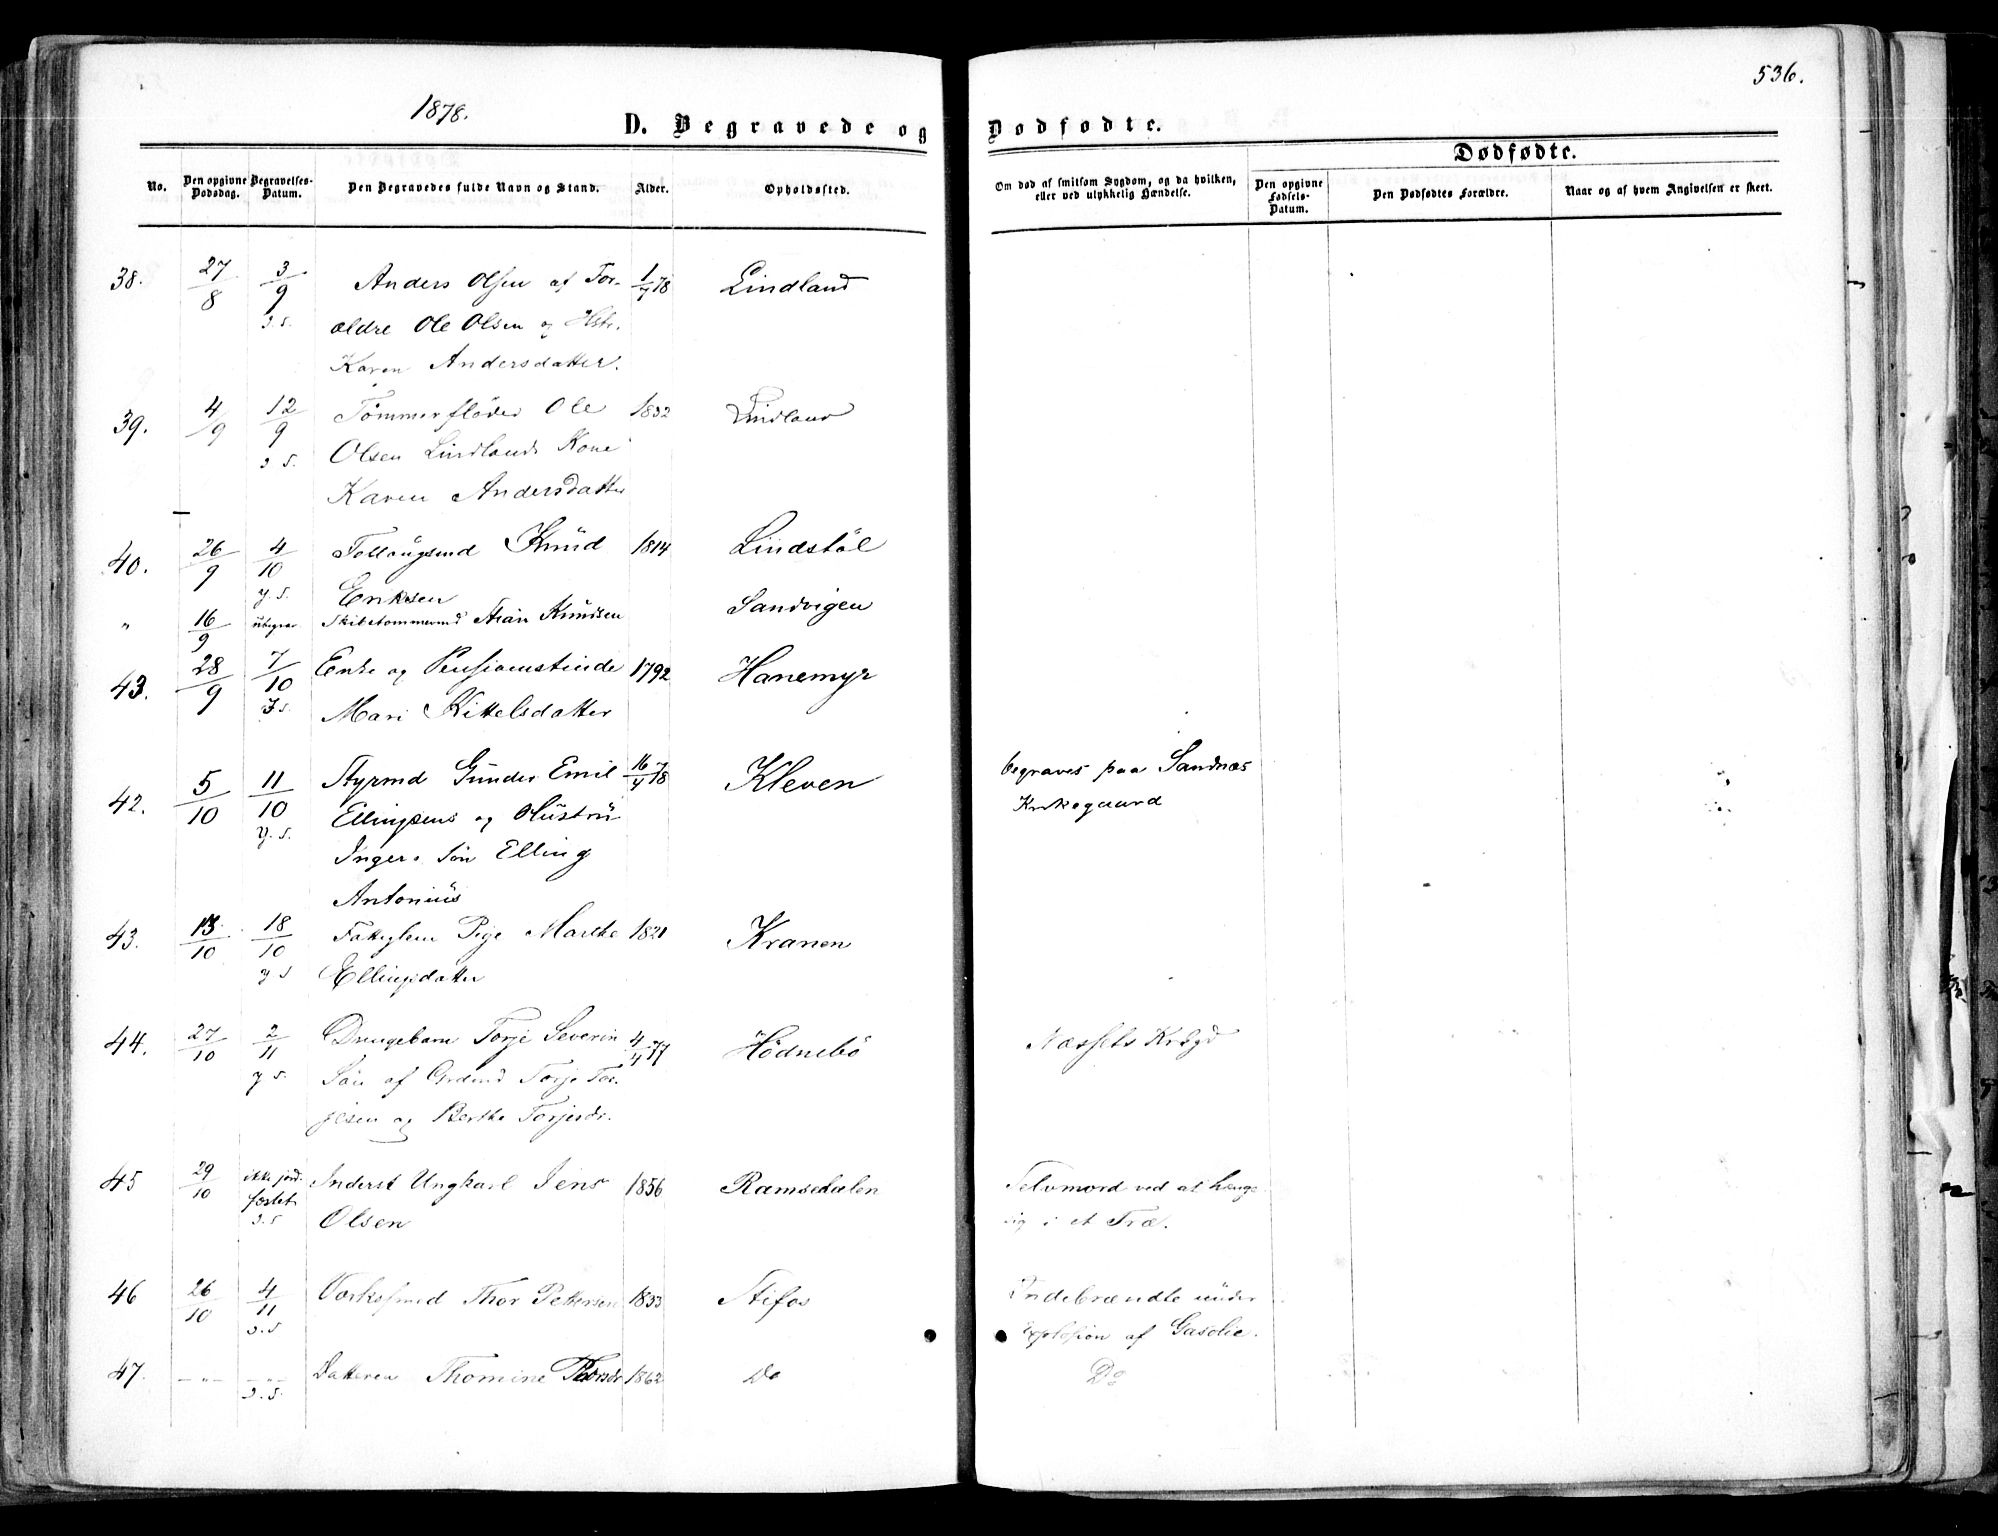 536.
1878.
D. Begravede og Dødfødte.
Dødfødte.
No.
Den opgivne Dødsdag.
Begravelses-Datum.
Den Begravedes fulde Navn og Stand.
Alder.
Opholdssted.
Om død af smitsom Sygdom, og da hvilken,
eller ved ulykkelig Hændelse.
Den opgivne Fødsels-Datum.
Den Dødfødtes Forældre.
Naar og af hvem Angivelsen er skeet.
38. 27/8 3/9 Anders Olsen af For- 1/7 78 Lindland
ældre Ole Olsen og
Karen Andersdatter.
39. 4/9 12/9 Tømmerfløder Ole 1832 Lindland
Olsen Lindlands Kone
Karen Andersdatter
40. 26/9 4/10 Knud 1814 Lindstøl
y. s. Eriksen
" 16/9 ubegrav. Skibstømmermd Knudsen Sandvigen
43. 28/9 7/10 Enke og 1792 Hanemyr
Mari Kittelsdatter
42. 5/10 11/10 Styrmd Gunder Emil 16/7 78 Kleven begraves paa Sandnæs
y. s. Ellingsens og Hustru Kirkegaard
Ingers Søn Elling
Antonius
43. 13/10 18/10 Fattiglem Pige Marthe 1821 Kranen
y s Ellingsdatter
44. 27/10 2/11 Drengebarn Torje Severin 4/4 77 Hødnebø Næssets Krkgd
y s. Søn af Grdmd Torje Tor-
jesen og Berthe Torjesdr.
45 29/10 ikke jord- Inderst Ungkarl Jens 1856 Ramsedalen Selvmord ved at hænge
fæstet Olsen sig i et Træ.
46 26/10 4/11 Værksmed Thor Pettersen 1833 Stifos Indebrændte under
Explosion af Gasolie.
47. — " — — " — Datteren Thomine Thorsdr 1862 Do Do